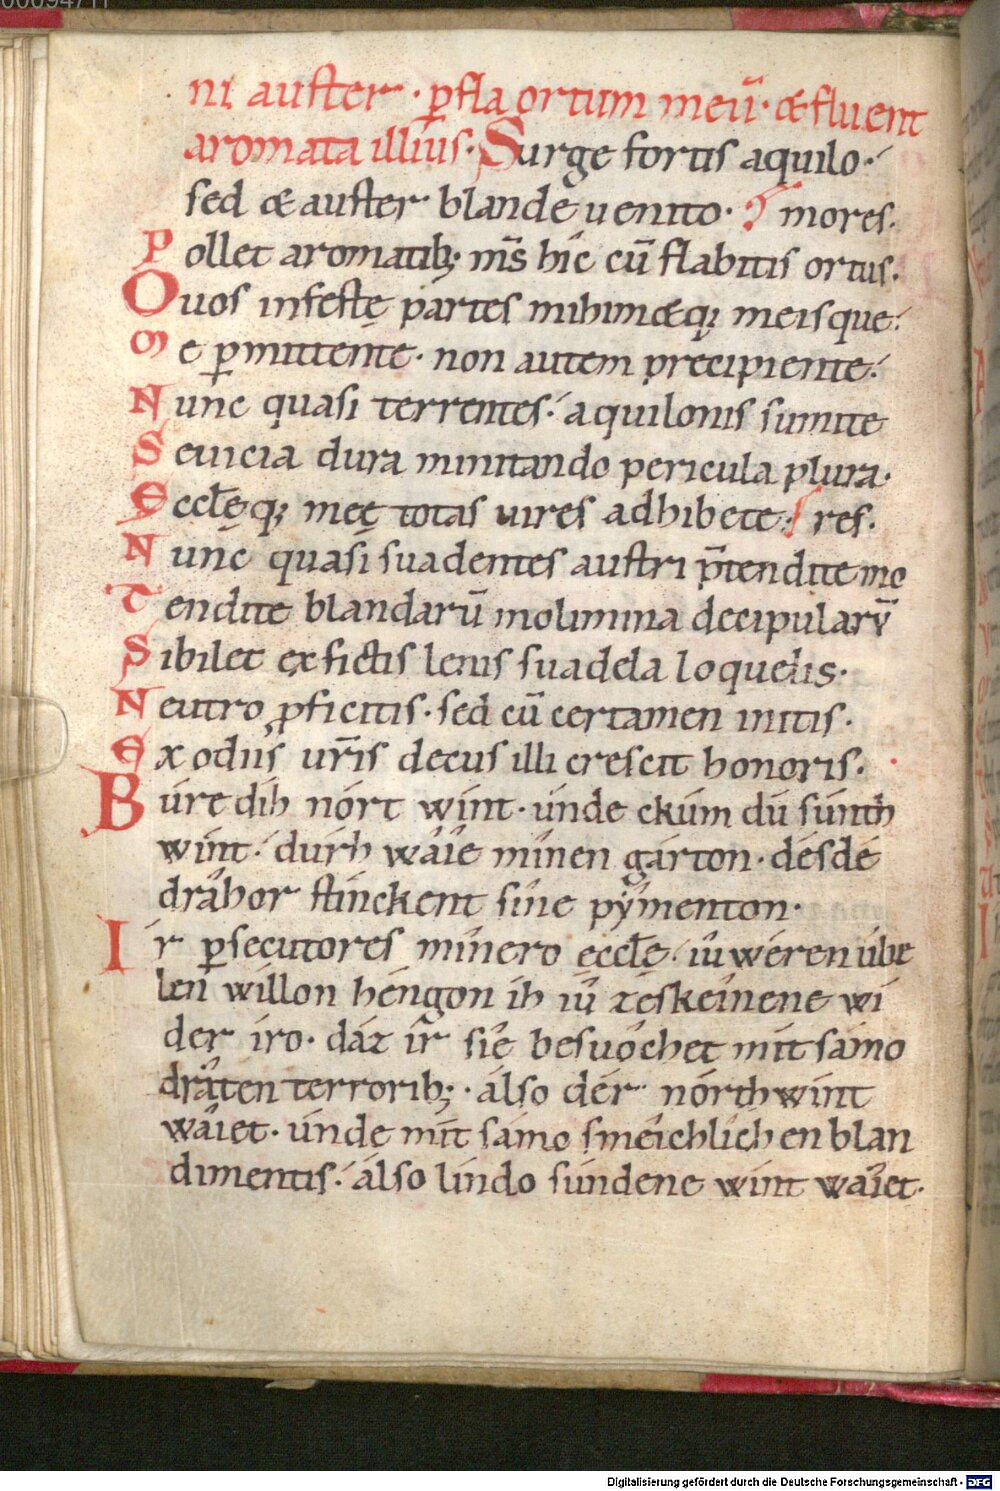 ni auster · ꝑfla ortum meū · & fluent
aromata illius · Surge fortis aquilo ·
sed & auster blande uenito · mores.
Pollet aromatib; m̄s hic cū flabitis ortus.
Quos infestę partes mihim&q; meisque.
Me ꝑmittente · non autem precipiente.
Nunc quasi terrentes · aquilonis sumite
Seuicia dura minitando pericula plura.
Eccłęq; meę totas uires adhibete. res.
Nunc quasi suadentes austri p̄tendite mo
Tendite blandarū molimina decipularū
Sibilet ex fictis lenis suadela loquelis.
Neutro ꝓficitis · sed cū certamen initis.
Ex odiis ur̄is decus illi crescit honoris.
Búre dih nórt wint · únde ckúm dú súnth
wint · dúrh wáie mínen gárton · désdé
dráhor stínckent síne pýmenton ·
Ír ꝑsecutores mínero eccłę · iú wéren úbe
len willon héngon ih iú zeskéinene wi
der íro · dáz ír síe besuóchet mít sámo
dráten terrorib; · álso dér nórthwint
wáiet · únde mít sámo sméichlichen blan
dimentis · álso líndo súndene wint wáiet ·
Digitalisierung gefördert durch die Deutsche Forschungsgemeinschaft - DFG